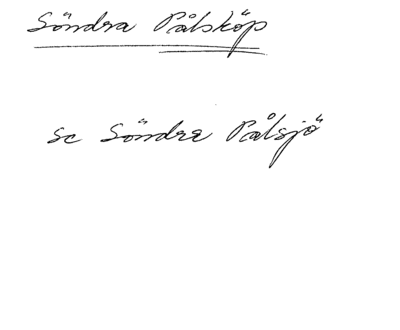 Söndra Pålsköp
Se Söndra Pålsjö